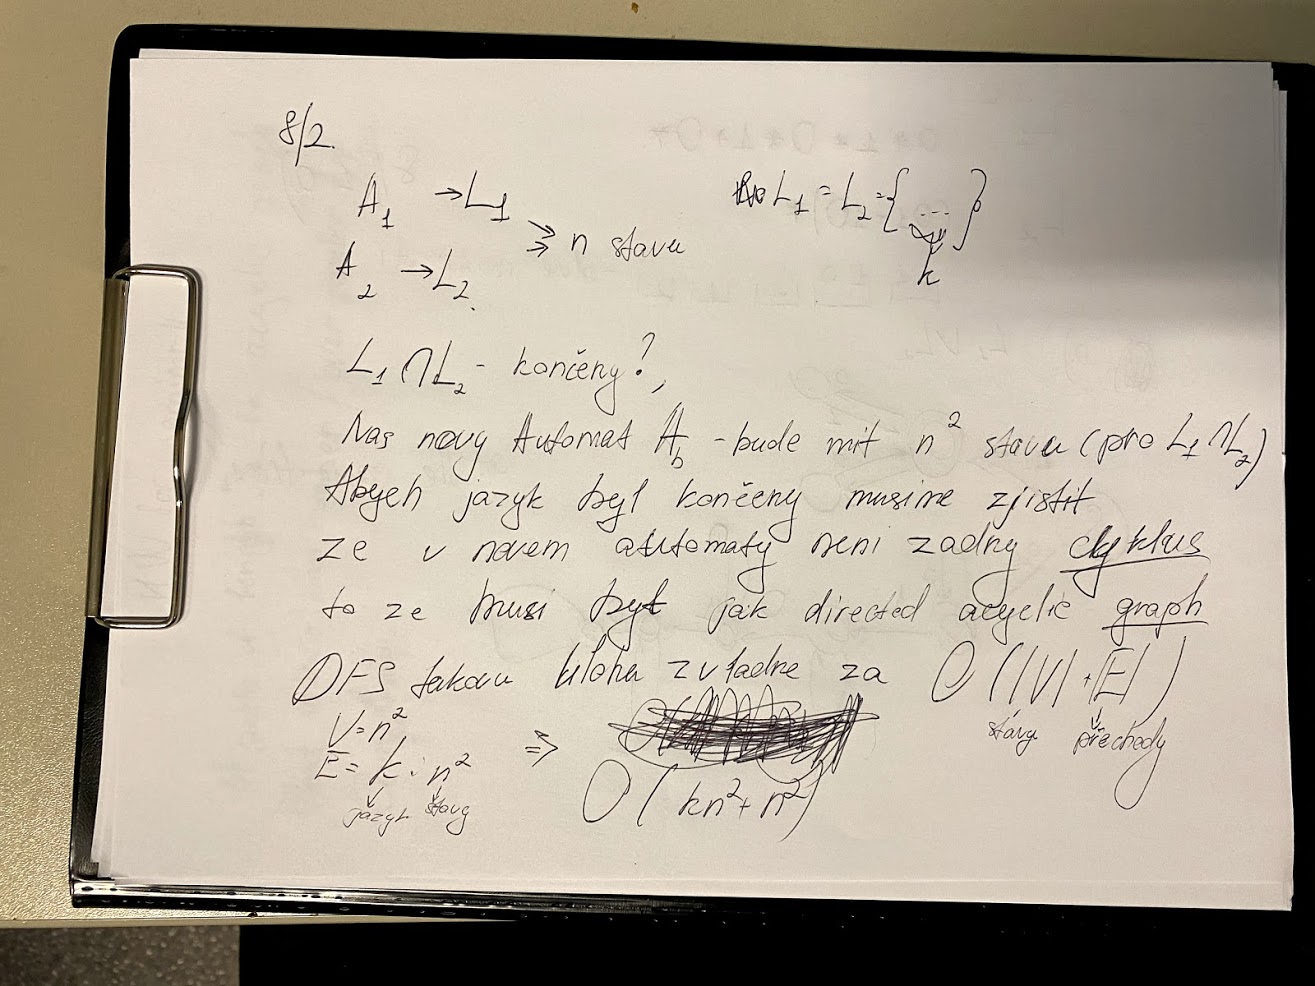 8/2.
A₁ → L₁
L₁ = L₂ = { ... }
k
⇒ n stavu
A₂ → L₂.
L₁ ∩ L₂ - končeny?,
Nas novy Automat A - bude mit n² stavu (pro L₁ ∩ L₂)
Abych jazyk byl končeny musime zjistit
ze v novem automaty neni zadny cyklus
to ze musi byt jak directed acyclic graph
DFS takovu ulohu zvladne za O(|V| + |E|)
stavy přechody
V = n²
E = k · n² ⇒ O(kn² + n²)
jazyk stavy